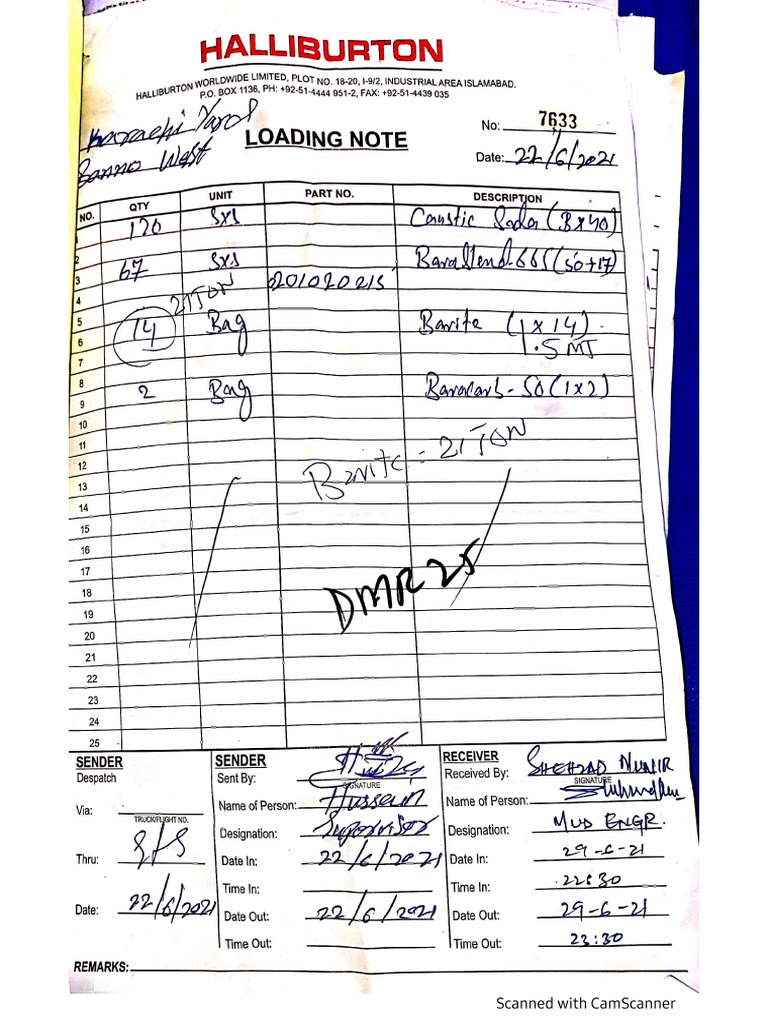 HALLIBURTON
HALLIBURTON WORLDWIDE LIMITED, PLOT NO. 18-20, I-9/2, INDUSTRIAL AREA ISLAMABAD.
P.O. BOX 1136, PH: +92-51-4444 951-2, FAX: +92-51-4439 035
Karachi Yard
Banno West
LOADING NOTE
No: 7633
Date: 22/6/2021
NO. QTY UNIT PART NO. DESCRIPTION
1 120 sxs Caustic Soda (3x40)
2
3 67 sxs Barablend 665 (50+17)
4 21TON 20102021S
5 14 Bag Barite (1x14)
6 1.5 MT
7
8 2 Bag Baracarb-50 (1x2)
9
10
11
12 Barite = 21 TON
13
14
15
16
17
18 DMR 25
19
20
21
22
23
24
25
SENDER
Despatch
Via:
TRUCK/FLIGHT NO.
Thru:
Date: 22/6/2021
SENDER
Sent By:
SIGNATURE
Name of Person: Hussain
Designation: Supervisor
Date In: 22/6/2021
Time In:
Date Out: 22/6/2021
Time Out:
RECEIVER
Received By: SHEHZAD MUNIR
SIGNATURE
Name of Person:
Designation: MUD ENGR.
Date In: 29-6-21
Time In: 22:30
Date Out: 29-6-21
Time Out: 23:30
REMARKS:
Scanned with CamScanner